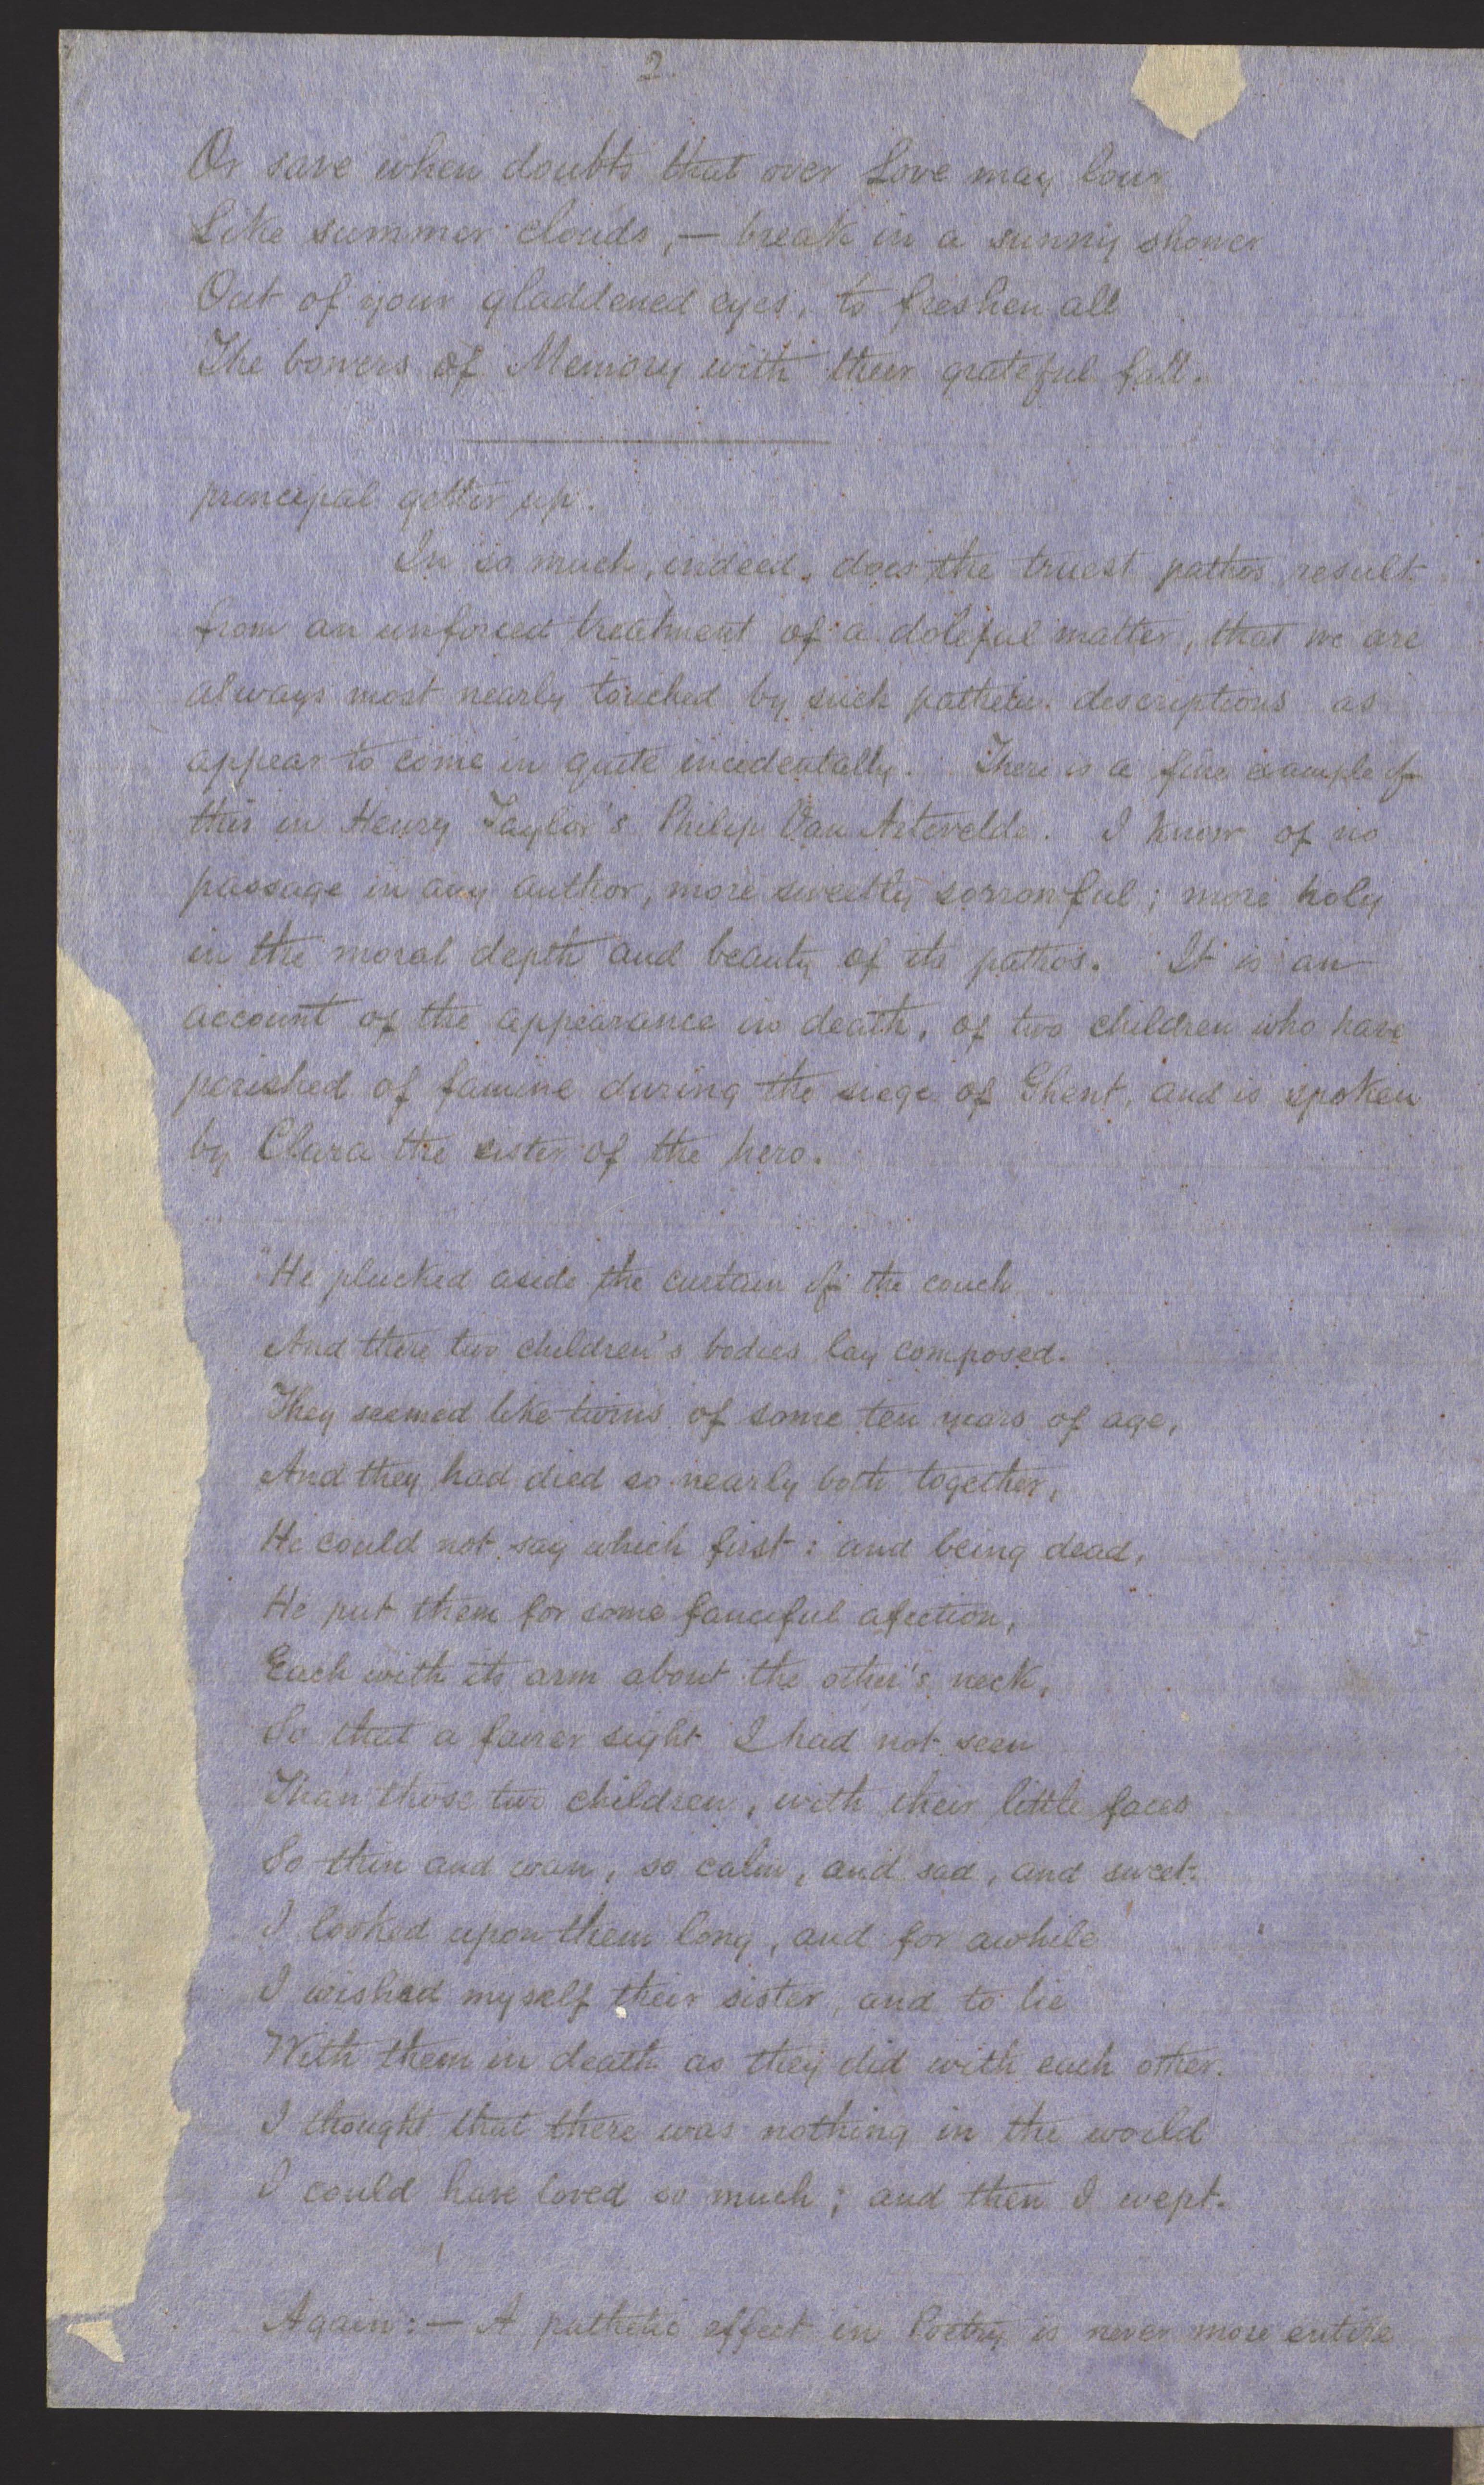 2.
Or save when doubts that over Love may lour
Like summer clouds, — break in a sunny shower
Out of your gladdened eyes, to freshen all
The bowers of Memory with their grateful fall.
principal getter up.
In so much, indeed, does the truest pathos result
from an unforced treatment of a doleful matter, that we are
always most nearly touched by such pathetic descriptions as
appear to come in quite incidentally. There is a fine example of
this in Henry Taylor's Philip Van Artevelde. I know of no
passage in any author, more sweetly sorrowful; more holy
in the moral depth and beauty of its pathos. It is an
account of the appearance in death, of two children who have
perished of famine during the siege of Ghent, and is spoken
by Clara the sister of the hero.
"He plucked aside the curtain of the couch
And there two children's bodies lay composed.
They seemed like twins of some ten years of age,
And they had died so nearly both together,
He could not say which first: and being dead,
He put them for some fanciful afection,
Each with its arm about the other's neck,
So that a fairer sight I had not seen
Than those two children, with their little faces
So thin and wan, so calm, and sad, and sweet.
I looked upon them long, and for awhile
I wished myself their sister, and to lie
With them in death as they did with each other.
I thought that there was nothing in the world
I could have loved so much; and then I wept.
Again: — A pathetic effect in Poetry is never more entire